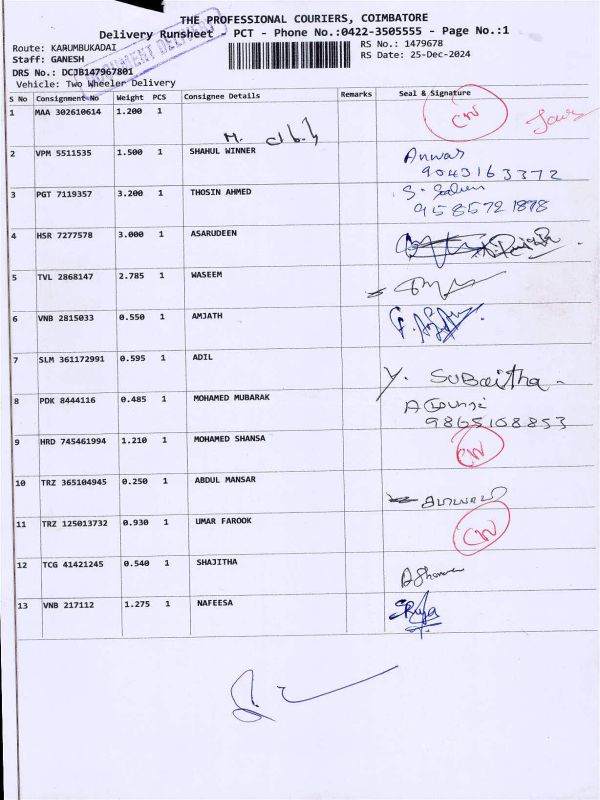 THE PROFESSIONAL COURIERS, COIMBATORE
Delivery Runsheet - PCT - Phone No.:0422-3505555 - Page No.:1
Route: KARUMBUKADAI RS No.: 1479678
Staff: GANESH RS Date: 25-Dec-2024
DRS No.: DCJB147967801
Vehicle: Two Wheeler Delivery
S No Consignment No Weight PCS Consignee Details Remarks Seal & Signature
1 MAA 302610614 1.200 1 CN
2 VPM 5511535 1.500 1 SHAHUL WINNER Anwar
9043163372
3 PGT 7119357 3.200 1 THOSIN AHMED
9585721878
4 HSR 7277578 3.000 1 ASARUDEEN
5 TVL 2868147 2.785 1 WASEEM
6 VNB 2815033 0.550 1 AMJATH
7 SLM 361172991 0.595 1 ADIL Y. SUBaitha
8 PDK 8444116 0.485 1 MOHAMED MUBARAK
9865108853
9 HRD 745461994 1.210 1 MOHAMED SHANSA CN
10 TRZ 365104945 0.250 1 ABDUL MANSAR
11 TRZ 125013732 0.930 1 UMAR FAROOK CN
12 TCG 41421245 0.540 1 SHAJITHA
13 VNB 217112 1.275 1 NAFEESA